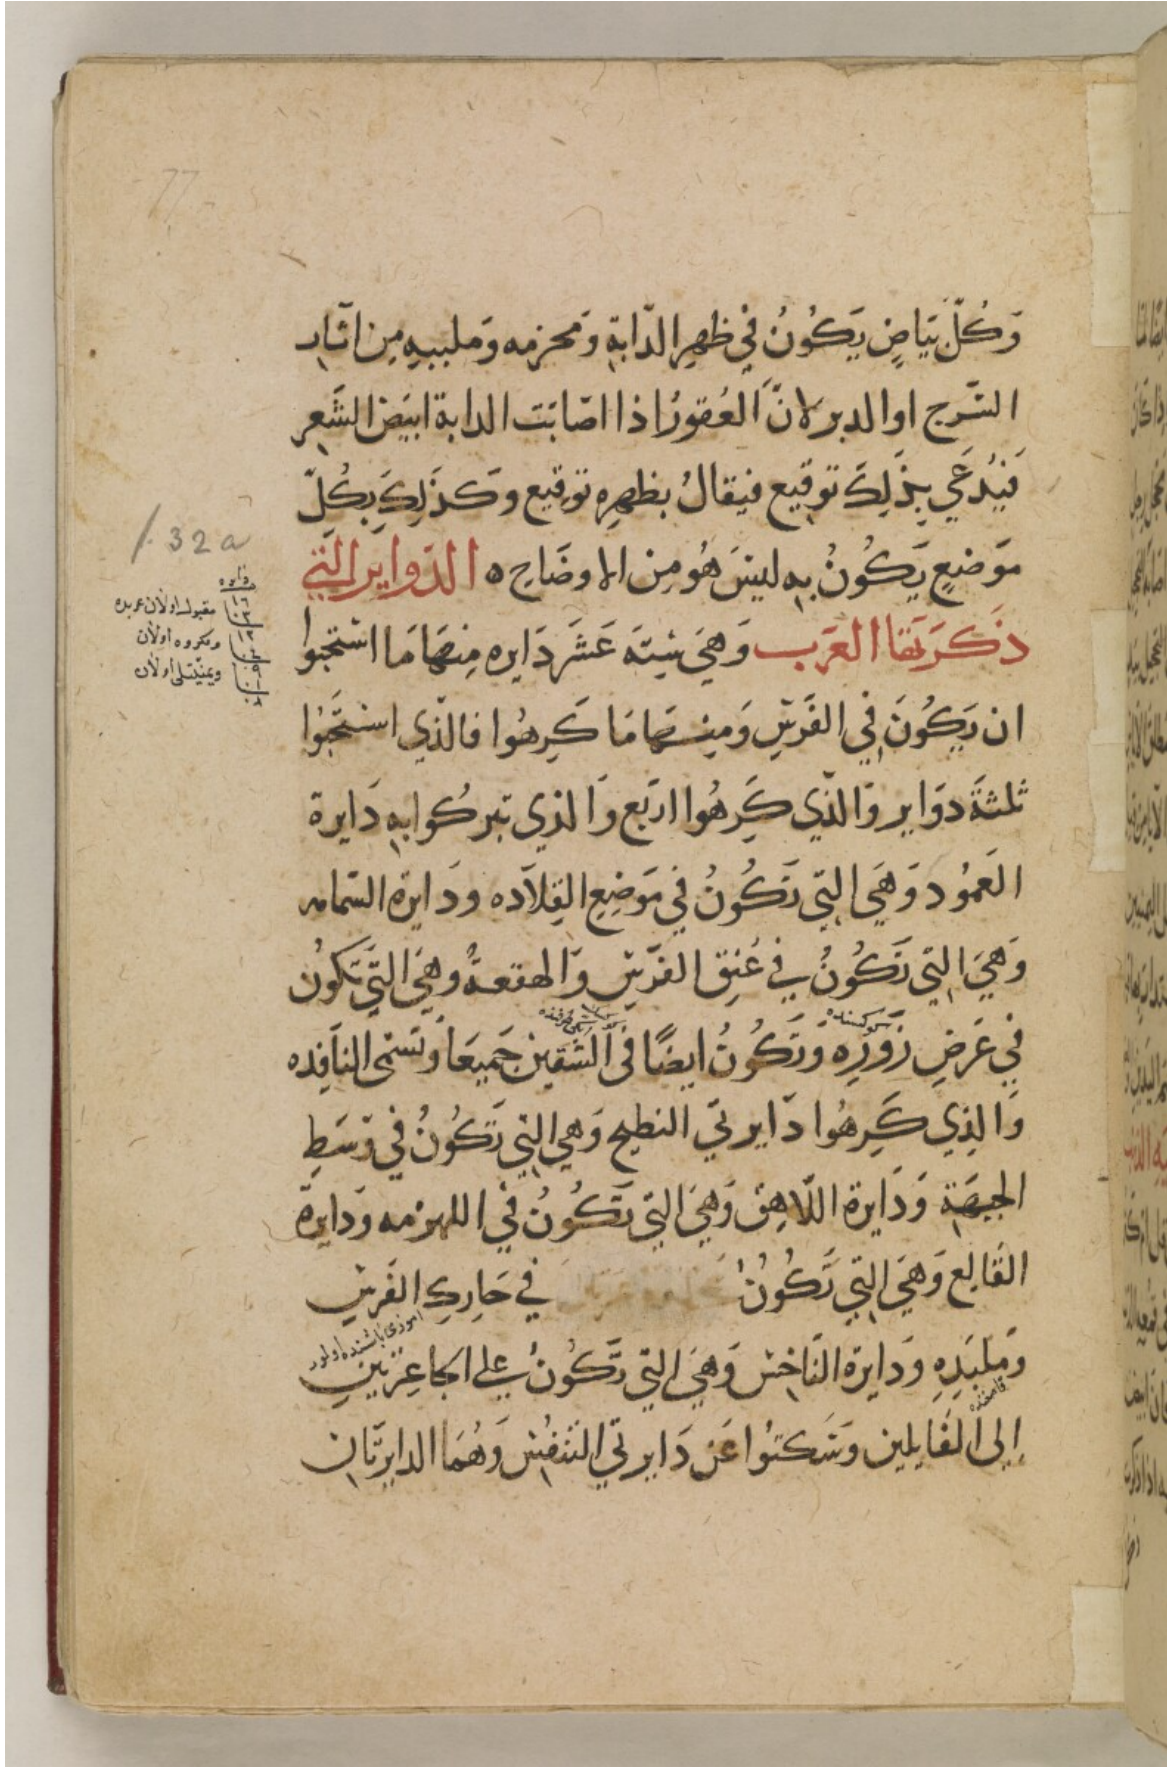 وَكُلّ بَيَاضٍ يَكُونُ فِي ظهرِ الدّابةِ وَمحزمه وَملببهِ مِن اثَارِ
السَّرج او الدبر لانَّ العُقورُ اذا اصَابَت الدابة ابيَضَ الشَّعر
فَيُدعَي بِذَلِكَ توقيع فيقالُ بظهرِهِ توقيع وَكذَلِكَ بِكُلّ
مَوَضعٍ يَكُونُ بهِ ليسَ هُو مِن الاوضَاحِ ه الدّوايرالتي
ذَكرَتها العَرَب وَهيَ سِتَة عَشَر دَايره مِنهَا مَا استحبوا
ان يَكُونَ فِي الفَرَسِ وَمِنهَا مَا كَرِهُوا فالذي استَحَبوُا
ثلثَةَ دوَاير وَالذّي كَرِهُوا اربَع وَالذي تبركُوا بهِ دَايرة
العَمُود وَهيَ التِي تكُونُ في مَوَضِعِ القِلاَده ودَايرة السَّمامه
وَهيَ التِي تكُونُ في عُنِق الفَرَسِ وَالهقعةُ وهيَ التَّي تكونُ
فِي عَرَضِ زَورِه وَتَكُونُ ايضًا في الشقين جَميعَاً وَتسَمى النافِذه
كوكسنده
وَالذِي كَرِهُوا دَايرتي النطيح وَهي التِي تَكُونُ فِي وَسَطِ
الجبهَة وَدَايرة اللّاهِز وَهيَ التِي تَكُونُ فِي اللهزمه ودَايرة
القَالِع وَهيَ التِي تَكُونُ في حَارِكِ الفَرسِ
وَملبَدِهِ وَدَايرة النَاخِس وَهيَ التِي تَكُونُ علي الجاعِرتَينِ
إلى الفَايلين وَسَكتوُا عَن دَايرتي التنفُس وَهُمَا الدايرتَان
f. 32a
دايره
١٦
مقبول اولان عربده
ومكروه اولان
ويمنيّتلى اولان
77